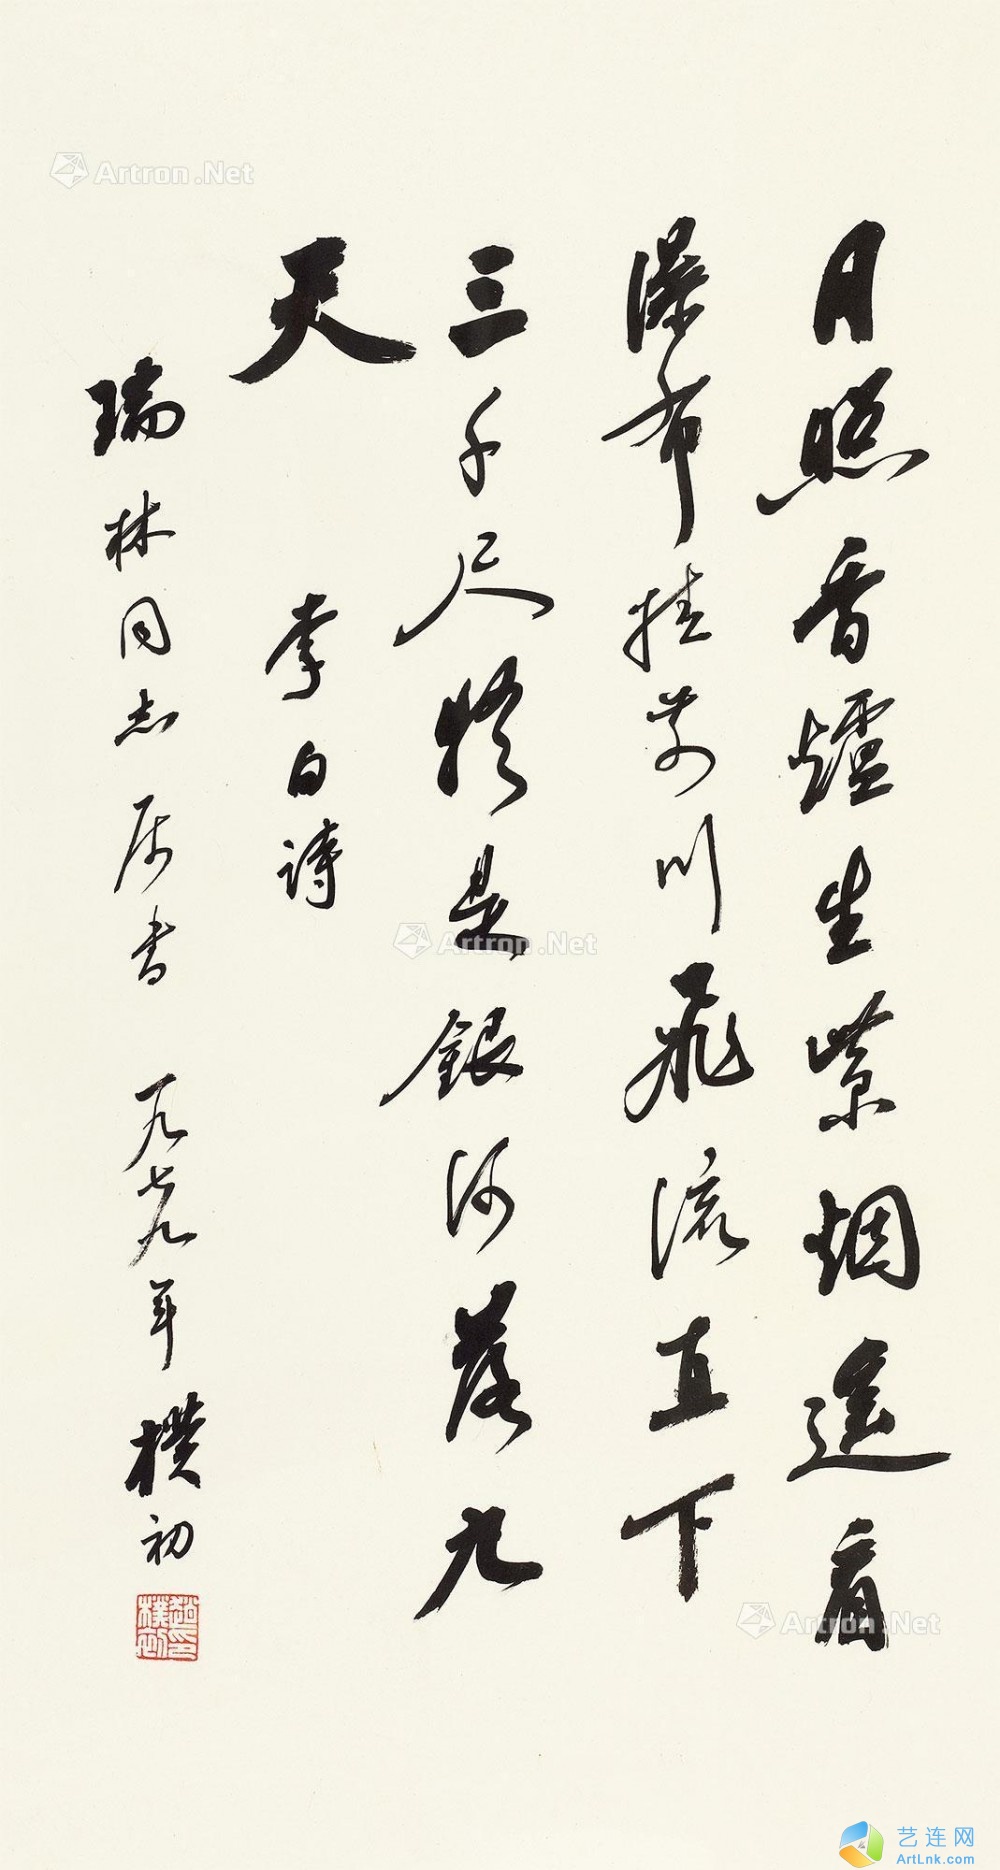 日照香爐生紫烟遙看
瀑布挂前川飛流直下
三千尺疑是銀河落九
天
李白詩
瑞林同志属書 一九七九年 樸初
趙樸初印
Artron.Net
Artron.Net
Artron.Net
艺连网
ArtLnk.com